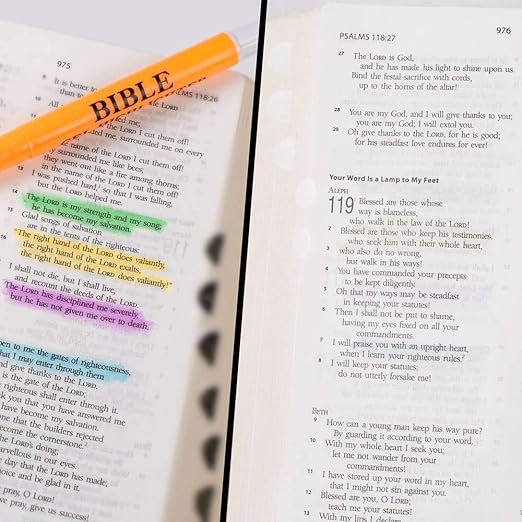 975
BIBLE
PSALMS 118:26
It is better to
than to
All
me,
surrounded me on every
the name of the LORD I cut them off!
They surrounded me like bees;
they went out like a fire among thorns;
in the name of the LORD I cut them off!
13 I was pushed hard, so that I was falling,
but the LORD helped me.
14 The LORD is my strength and my song;
he has become my salvation.
15 Glad songs of salvation
are in the tents of the righteous:
"The right hand of the LORD does valiantly,
16 the right hand of the LORD exalts,
the right hand of the LORD does valiantly!"
I shall not die, but I shall live,
and recount the deeds of the LORD.
The LORD has disciplined me severely,
but he has not given me over to death.
open to me the gates of righteousness,
that I may enter through them
and give thanks to the LORD.
is the gate of the LORD;
righteous shall enter through it.
thank you that you have answered me
have become my salvation.
stone that the builders rejected
become the cornerstone.
the LORD's doing;
marvelous in our eyes.
the day that the LORD has made;
rejoice and be glad in it.
pray, O LORD!
pray, give us success!
PSALMS 118:27
976
27 The LORD is God,
and he has made his light to shine upon us.
Bind the festal sacrifice with cords,
up to the horns of the altar!
28 You are my God, and I will give thanks to you;
you are my God; I will extol you.
29 Oh give thanks to the LORD, for he is good;
for his steadfast love endures for ever!
Your Word Is a Lamp to My Feet
ALEPH
119 Blessed are those whose
way is blameless,
who walk in the law of the LORD!
2 Blessed are those who keep his testimonies,
who seek him with their whole heart,
3 who also do no wrong,
but walk in his ways!
4 You have commanded your precepts
to be kept diligently.
5 Oh that my ways may be steadfast
in keeping your statutes!
6 Then I shall not be put to shame,
having my eyes fixed on all your
commandments.
7 I will praise you with an upright heart,
when I learn your righteous rules.2
8 I will keep your statutes;
do not utterly forsake me!
BETH
9 How can a young man keep his way pure?
By guarding it according to your word.
10 With my whole heart I seek you;
let me not wander from your
commandments!
11 I have stored up your word in my heart,
that I might not sin against you.
12 Blessed are you, O LORD;
teach me your statutes!
13 With my lips I declare